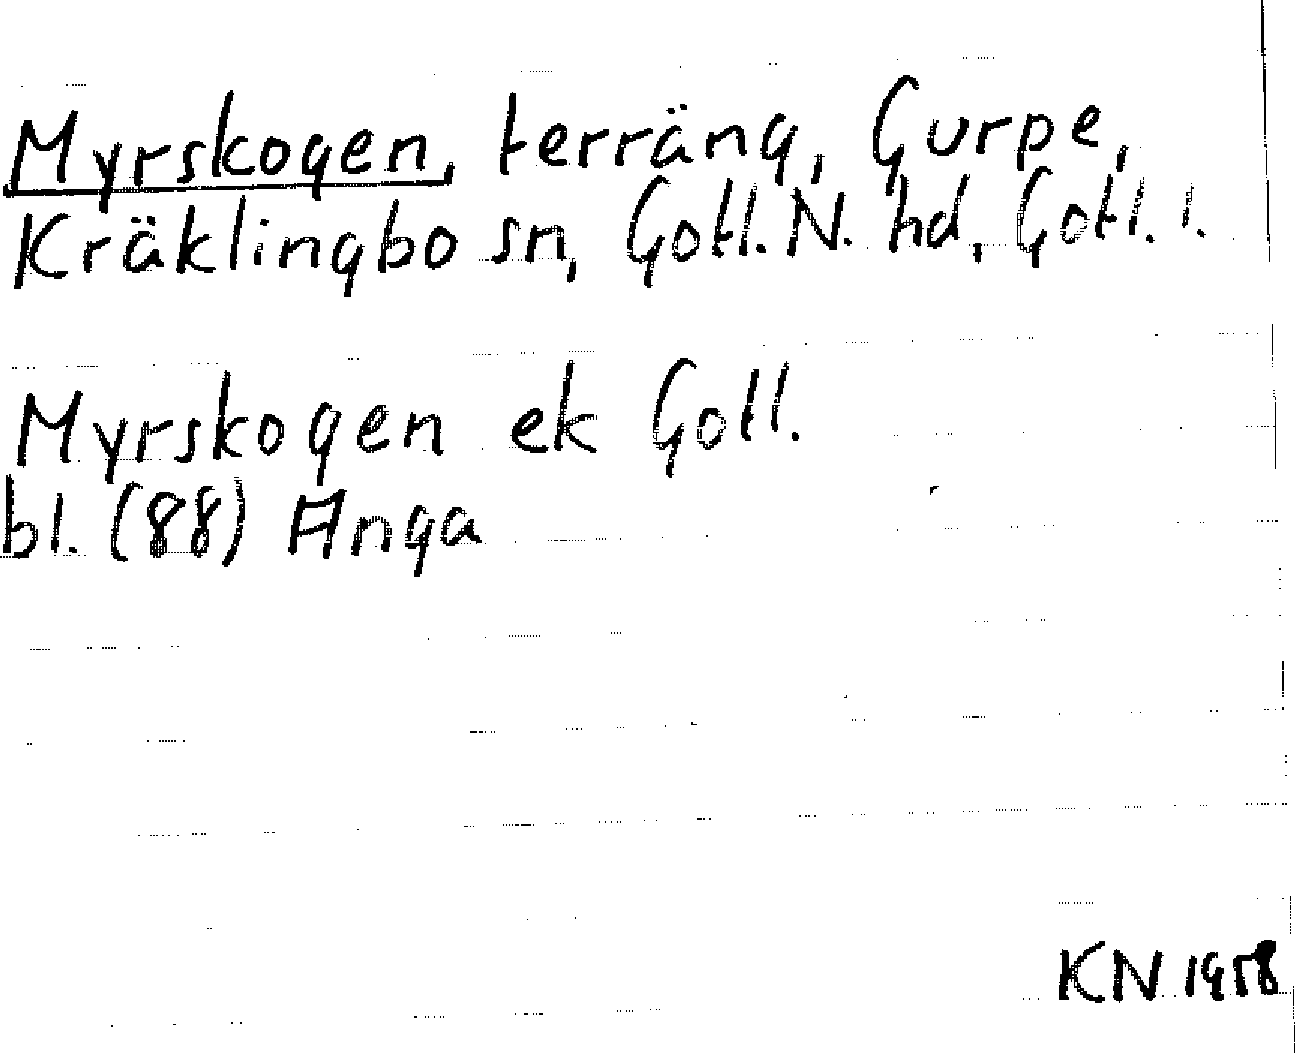 Myrskogen, terräng, Gurpe,
Kräklingbo sn, Gotl. N. hd, Gotl. l.
Myrskogen ek Gotl.
bl. (88) Anga
KN 1958